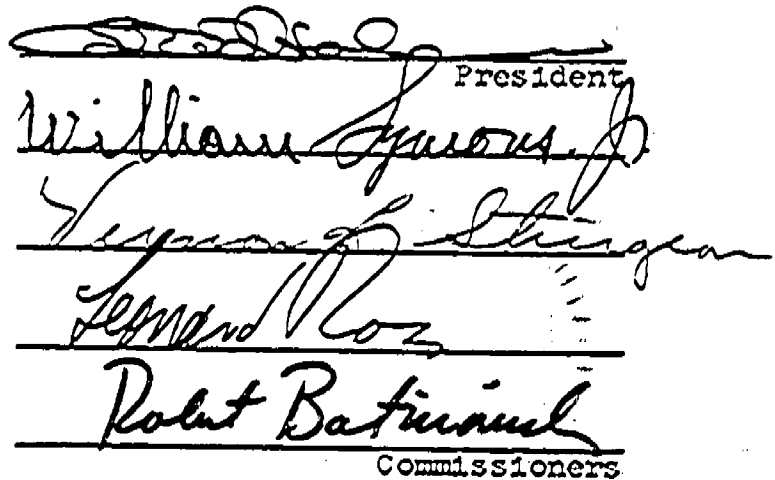 President
William Symons, Jr
Vernon L. Sturgeon
Leonard Ros
Robert Batinovich
Commissioners